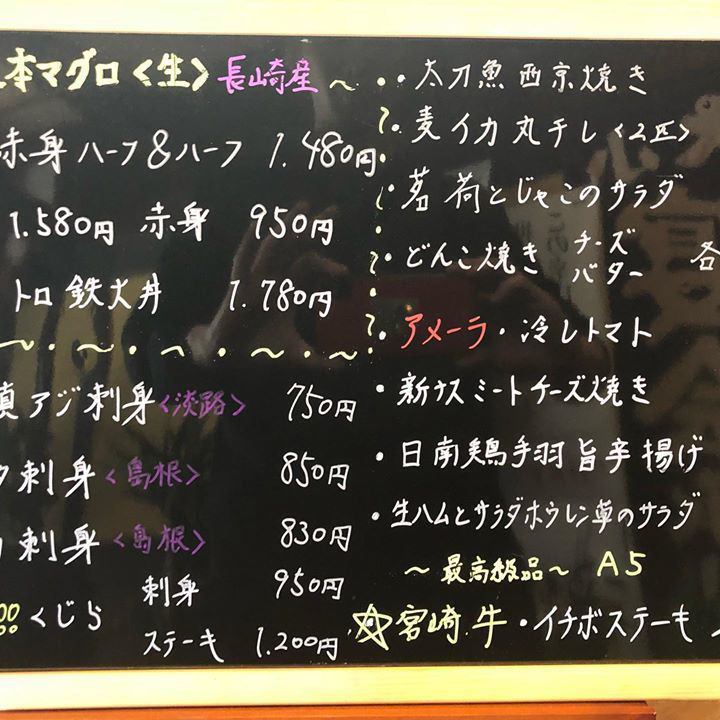 本マグロ〈生〉長崎産～
赤身ハーフ＆ハーフ 1.480円
1.580円 赤身 950円
トロ鉄火丼 1.780円
～・～・～・～・～・
真アジ刺身〈淡路〉 750円
刺身〈島根〉 850円
刺身〈島根〉 830円
くじら 刺身 950円
ステーキ 1.200円
・太刀魚西京焼き
・麦イカ丸干し〈2匹〉
・茗荷とじゃこのサラダ
・どんこ焼き チーズ バター 各
・アメーラ・冷しトマト
・新ナスミートチーズ焼き
・日南鶏手羽旨辛揚げ
・生ハムとサラダホウレン草のサラダ
～最高級品～ A5
☆宮崎牛・イチボステーキ